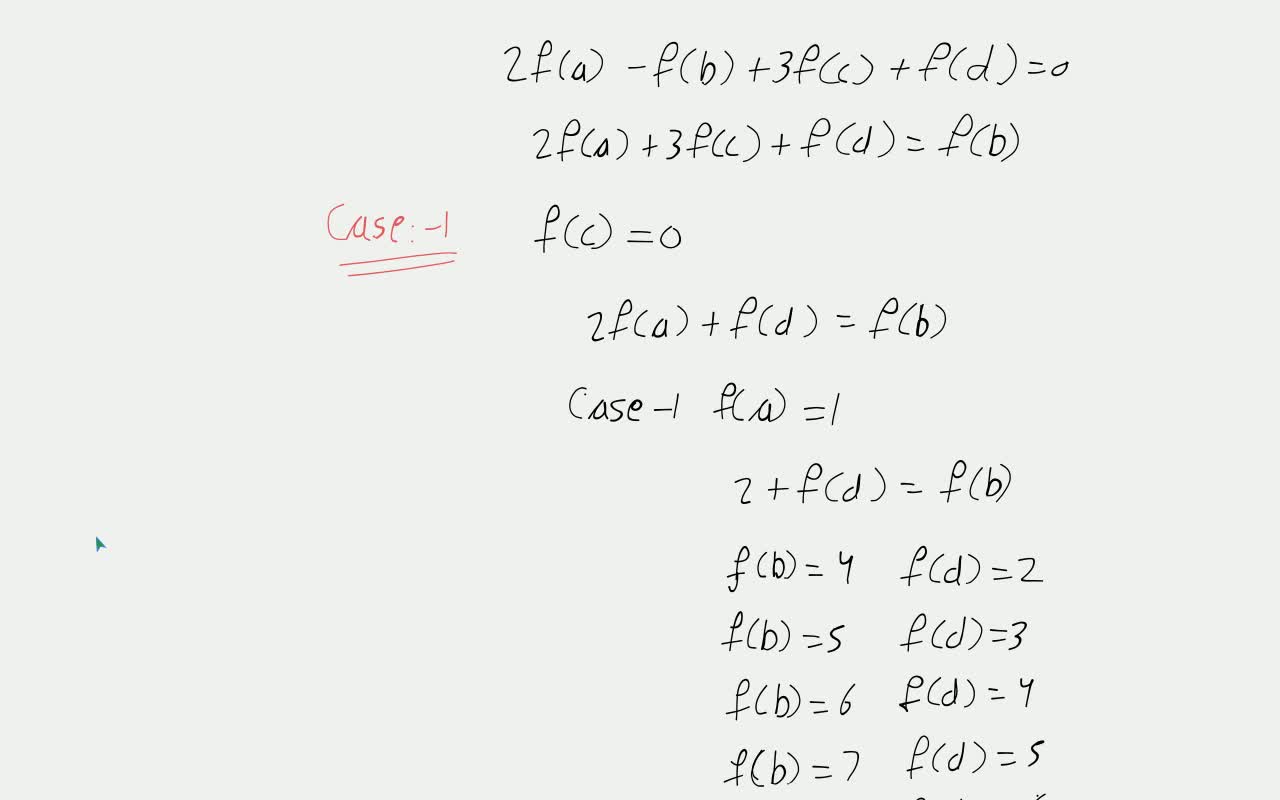 2f(a) - f(b) + 3f(c) + f(d) = 0
2f(a) + 3f(c) + f(d) = f(b)
Case:-1 f(c) = 0
2f(a) + f(d) = f(b)
Case-1 f(a) = 1
2 + f(d) = f(b)
f(b) = 4 f(d) = 2
f(b) = 5 f(d) = 3
f(b) = 6 f(d) = 4
f(b) = 7 f(d) = 5